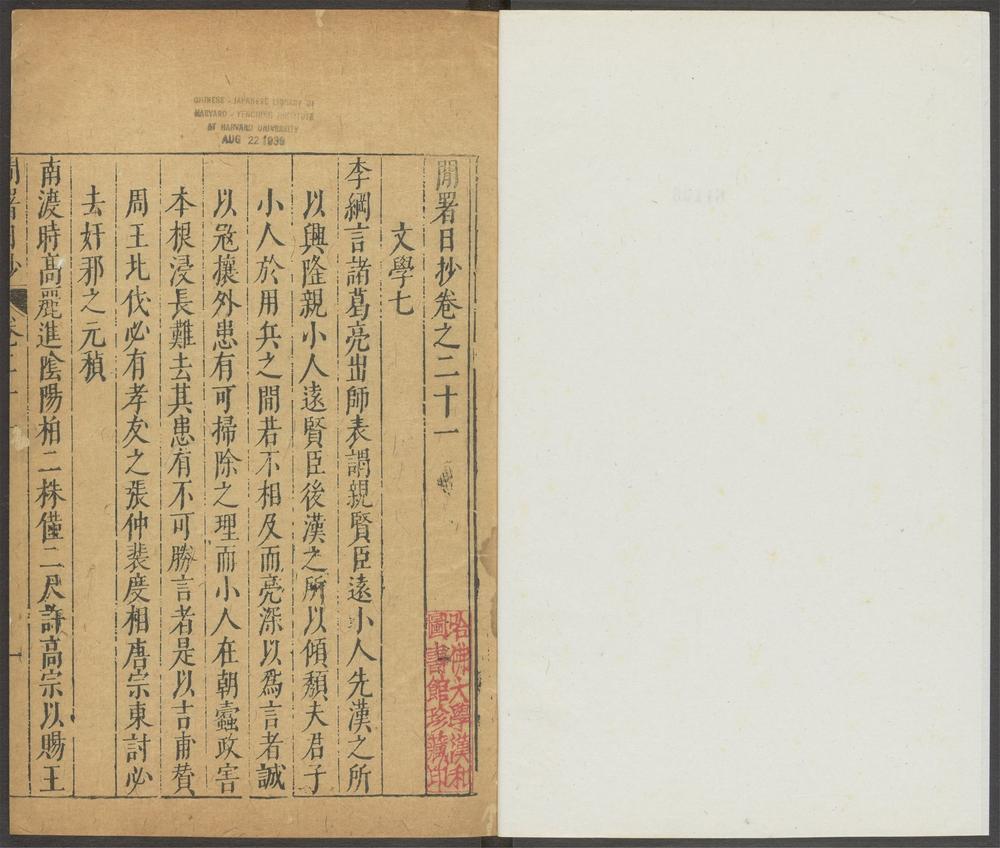 CHINESE - JAPANESE LIBRARY OF
HARVARD - YENCHING INSTITUTE
AT HARVARD UNIVERSITY
AUG 22 1939
閒署日抄卷之二十一
文學七
李綱言諸葛亮出師表謂親賢臣遠小人先漢之所
以興隆親小人遠賢臣後漢之所以傾頹夫君子
小人於用兵之間若不相及而亮深以爲言者誠
以寇攘外患有可掃除之理而小人在朝蠹政害
本根浸長難去其患有不可勝言者是以吉甫贊
周王北伐必有孝友之張仲裴度相唐宗東討必
去奸邪之元稹
南渡時高麗進陰陽柏二株僅二尺許高宗以賜王
哈佛大學漢和
圖書館珍藏印